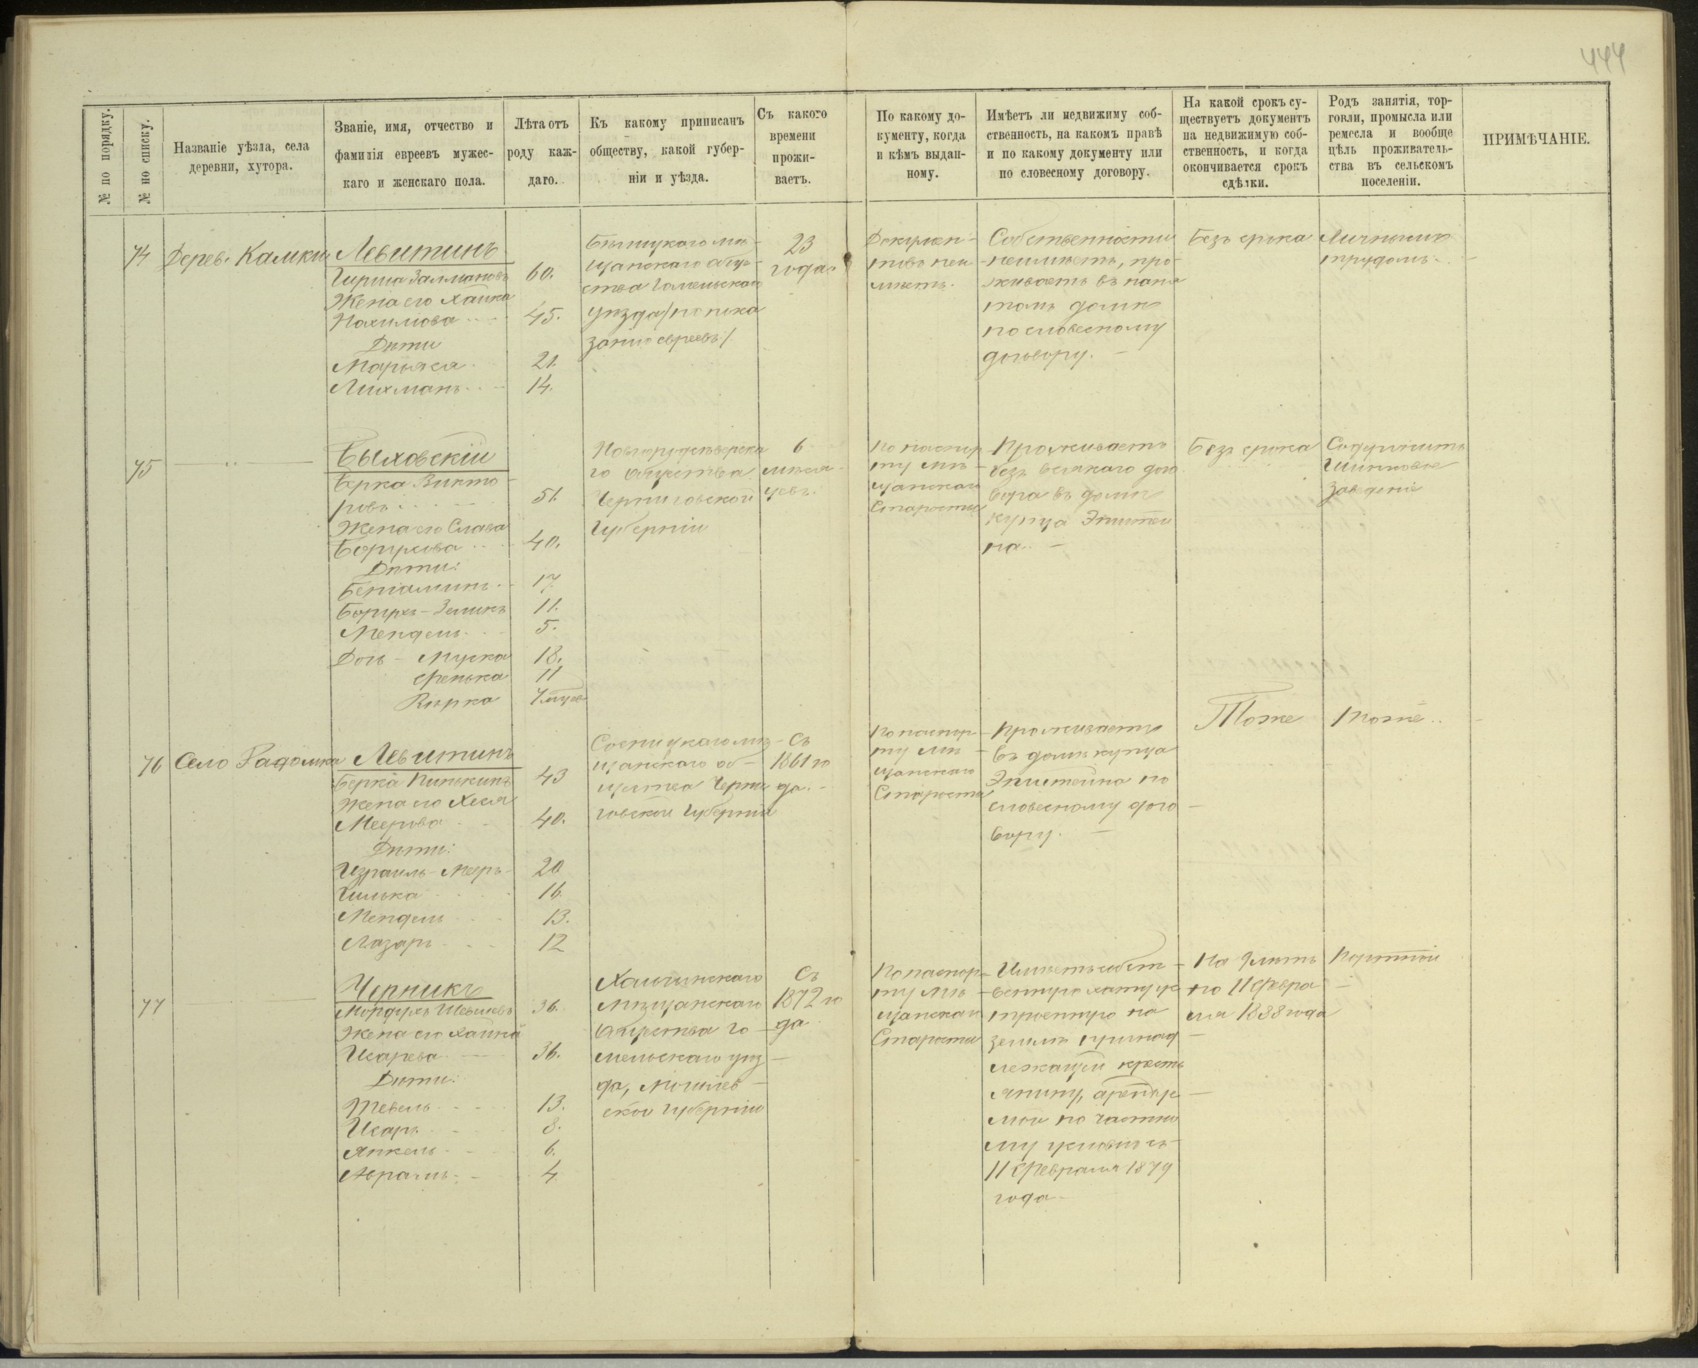 444
№ по порядку.
№ по списку.
Названіе уѣзда, села
деревни, хутора.
Званіе, имя, отчество и
фамилія евреевъ мужес-
каго и женскаго пола.
Лѣта отъ
роду каж-
даго.
Къ какому приписанъ
обществу, какой губер-
ніи и уѣзда.
Съ какого
времени
прожи-
ваетъ.
По какому до-
кументу, когда
и кѣмъ выдан-
ному.
Имѣетъ ли недвижиму соб-
ственность, на какомъ правѣ
и по какому документу или
по словесному договору.
На какой срокъ су-
ществуетъ документъ
на недвижимую соб-
ственность, и когда
окончивается срокъ
сдѣлки.
Родъ занятія, тор-
говли, промысла или
ремесла и вообще
цѣль проживатель-
ства въ сельскомъ
поселеніи.
ПРИМѢЧАНІЕ.
74
Дерев. Камки
Левитинъ
Гирша Залмановъ 60.
Жена его Хайка
Нохимова 45.
Дѣти
Марьяся 21.
Лихманъ 14.
мѣ-
щанскаго обще-
ства Гомельскаго
уѣзда /по пока
занію евреевъ/
23
года
Докумен-
товъ неи-
мѣетъ.
Собственности
неимѣетъ, про-
живаетъ въ наня
томъ домѣ
по словесному
договору. —
Безъ срока
Личнымъ
трудомъ.
75
— „ —
Быховскій
Берка Вигдо
ровъ 51.
Жена его Слава
Борухова 40.
Дѣти:
Беніаминъ 17.
Борухъ-Зелигъ 11.
Мендель 5.
Дочь - Муска 18.
Фенька 11
Рирка
го Общества
Черниговской
Губерніи
6
мѣся
цевъ.
По паспор
ту мѣ-
щанскаго
Старосты
Проживаетъ
безъ всякаго дого
вора въ домѣ
купца Эпштей
на. —
Безъ срока
Содержитъ
Шинковое
заведеніе
76
Село Радомка
Левитинъ
Берка Пинкинъ 43
Жена его Хеся
Меерова 40.
Дѣти:
Израиль-Меръ 20
Гилька 16.
Мендель 13.
Лазарь 12
Сосницкаго мѣ-
щанскаго об-
щества Черни
говской Губерніи
Съ
1861 го
да.
По паспор-
ту мѣ-
щанскаго
Старосты
Проживаетъ
въ домѣ купца
Эпштейна по
словесному дого
вору. —
Тоже
Тоже
77
Черникъ
Мордухъ Шевелевъ 36.
Жена его Хайка
Исарева 36.
Дѣти:
Тевель 13.
Исаръ 8.
Янкель 6.
Абрамъ 4
мѣщанскаго
Общества Го-
мельскаго уѣз
да, Могилев-
ской Губерніи
Съ
1872 го
да
По паспор-
ту мѣ-
щанскаго
Старосты
Имѣетъ собст-
венную хату ус
троенную на
землѣ принад
лежащей кресть
янину, арендуе-
мой по частно
му условію съ
11 Февраля 1879
года —
На 9 лѣтъ
по 11 Февра
ля 1888 года
Портной